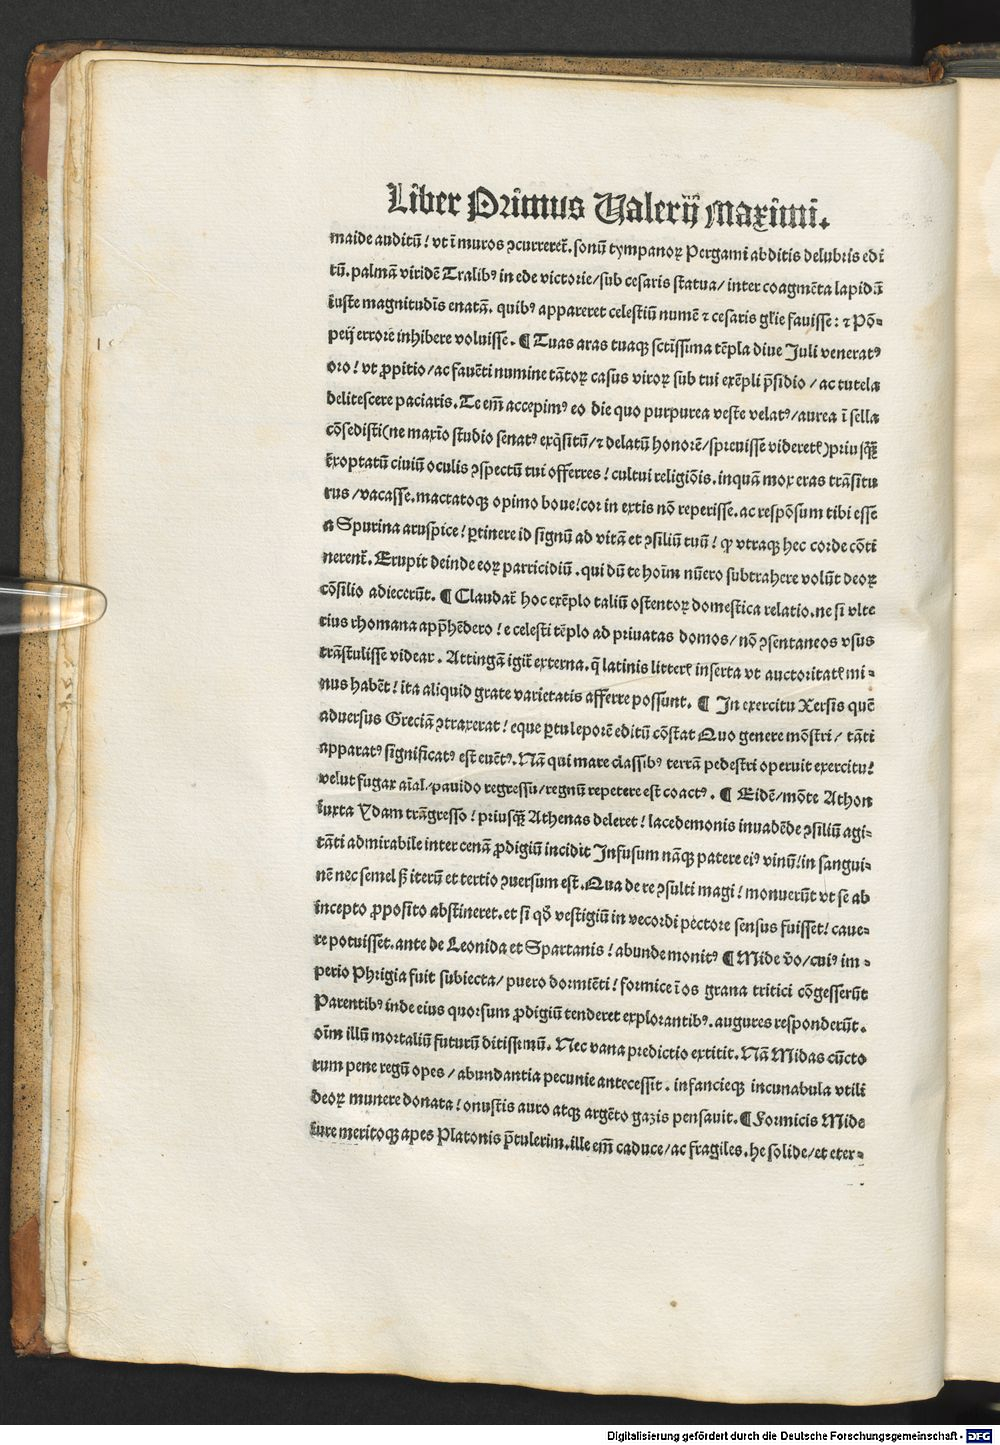 Liber Primus Valerij Maximi.
maide auditū! vt ī muros ↄcurreret̃. sonū tympanoꝝ Pergami abditis delubris edi
tū. palmā viridē Tralibꝰ in ede victorie/sub cesaris statua/ inter coagmēta lapidū
iuste magnitudīs enatā. quibꝰ appareret celestiū numē ⁊ cesaris gl̄ie fauisse: ⁊ Pō-
peij errorē inhibere voluisse. ¶ Tuas aras tuaqꝫ sctīssima tēpla diue Juli veneratꝰ
oro! vt ꝓpitio/ ac fauēti numine tātoꝝ casus viroꝝ sub tui exēpli p̄sidio/ ac tutela
delitescere paciaris. Te em̄ accepimꝰ eo die quo purpurea veste velatꝰ/aurea ī sella
cōsedisti(ne maxīo studio senatꝰ exq̄sitū/⁊ delatū honorē/spreuisse videret̃)priusq̄ꝫ
exoptatū ciuiū oculis ↄspectū tui offerres! cultui religiōis. in quā mox eras trāsitu
rus/vacasse. mactatoqꝫ opimo boue! cor in extis nō reperisse. ac respōsum tibi esse
a Spurina aruspice! ꝑtinere id signū ad vitā et ↄsiliū tuū! ꝙ vtraqꝫ hec corde cōti
nerent̃. Erupit deinde eoꝝ parricidiū. qui dū te hoīm nūero subtrahere volūt deoꝝ
cōsilio adiecerūt. ¶ Claudat̃ hoc exēplo taliū ostentoꝝ domestica relatio. ne si vlte
rius rhomana app̄hēdero! e celesti tēplo ad priuatas domos/ nō ↄsentaneos vsus
trāstulisse videar. Attingā igit̃ externa. q̄ latinis litter̃ inserta vt auctoritat̃ mi-
nus habēt! ita aliquid grate varietatis afferre possunt. ¶ In exercitu Xersis quē
aduersus Greciā ↄtraxerat! eque ꝑtu leporē editū cōstat Quo genere mōstri/ tāti
apparatꝰ significatꝰ est euētꝰ. Nā qui mare classibꝰ terrā pedestri operuit exercitu!
velut fugax aīal/pauido regressu/regnū repetere est coactꝰ. ¶ Eidē/mōte Athon
iuxta Ydam trāgresso! priusq̄ꝫ Athenas deleret! lacedemonis inuadēde ↄsiliū agi-
tāti admirabile inter cenā ꝓdigiū incidit Infusum nāqꝫ patere eiꝰ vinū! in sangui-
nē nec semel sꝫ iterū et tertio ↄuersum est. Qua de re ↄsulti magi! monuerūt vt se ab
incepto ꝓposito abstineret. et si qd̄ vestigiū in vecordi pectore sensus fuisset! caue-
re potuisset. ante de Leonida et Spartanis! abunde monitꝰ ¶ Mide v̄o/cuiꝰ im-
perio Phrigia fuit subiecta/ puero dormiēti! formice ī os grana tritici cōgesserūt
Parentibꝰ inde eius quorsum ꝓdigiū tenderet explorantibꝰ. augures responderūt.
oīm illū mortaliū futurū ditissimū. Nec vana predictio extitit. Nā Midas cūcto
rum pene regū opes/ abundantia pecunie antecessit. infancieqꝫ incunabula vtili
deoꝝ munere donata! onustis auro atqꝫ argēto gazis pensauit. ¶ Formicis Mide
iure meritoqꝫ apes Platonis p̄tulerim. ille em̄ caduce/ac fragiles. he solide/et eter-
Digitalisierung gefördert durch die Deutsche Forschungsgemeinschaft - DFG